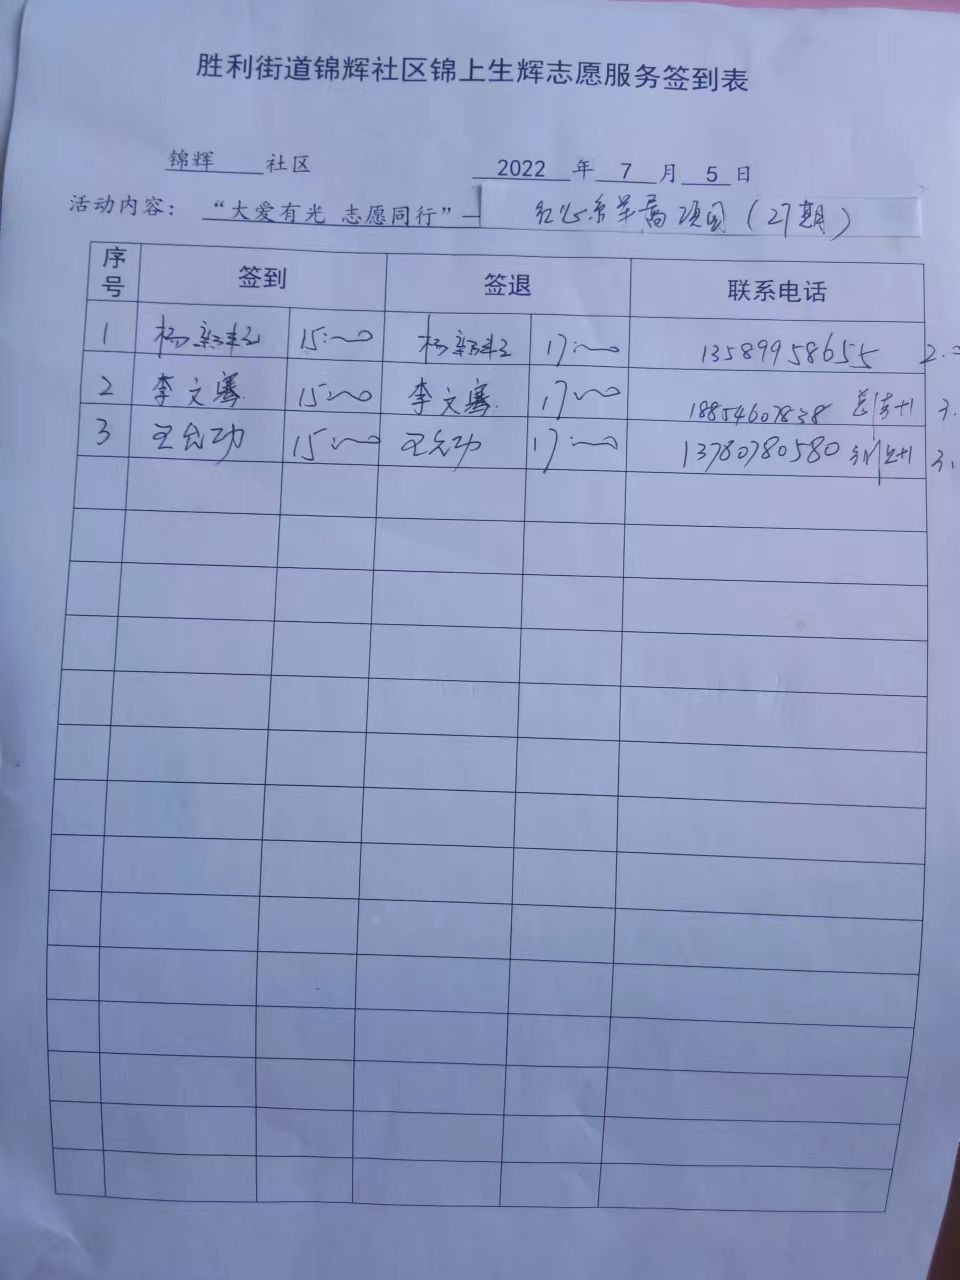 胜利街道锦辉社区锦上生辉志愿服务签到表
锦辉 社区 2022 年 7 月 5 日
活动内容： “大爱有光 志愿同行”— 红心系军属项目（27期）
序号 签到 签退 联系电话
1 杨 15:00 杨 17:00 13589958655 2.0
2 李文骞 15:00 李文骞 17:00 18854607838 +1 3.
3 王允功 15:00 王允功 17:00 13780780580 +1 3.